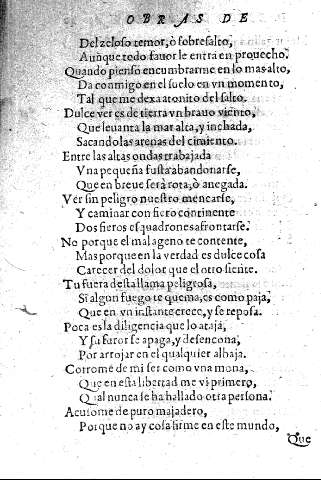 OBRAS DE
Del zeloso temor, ò sobresalto,
Aunque todo fauor le entra en prouecho.
Quando pienso encumbrarme en lo mas alto,
Da conmigo en el suelo en vn momento,
Tal que me dexa atonito del salto.
Dulce ver es de tierra vn brauo viento,
Que leuanta la mar alta, y inchada,
Sacandolas arenas del cimiento.
Entre las altas ondas trabajada
Vna pequeña fusta abandonarse,
Que en breue serà rota, ò anegada.
Ver sin peligro nuestro menearse,
Y caminar con fiero continente
Dos fieros esquadrones afrontarse.
No porque el mal ageno te contente,
Mas porque en la verdad es dulce cosa
Carecer del dolor que el otro siente.
Tu fuera desta llama peligrosa,
Si algun fuego te quema, es como paja,
Que en vn instante crece, y se reposa.
Poca es la diligencia que lo ataja,
Y su furor se apaga, y desencona,
Por arrojar en el qualquier alhaja.
Corrome de mi ser como vna mona,
Que en esta libertad me vi primero,
Qual nunca se ha hallado otra persona.
Acusome de puro majadero,
Porque no ay cosa firme en este mundo,
Que